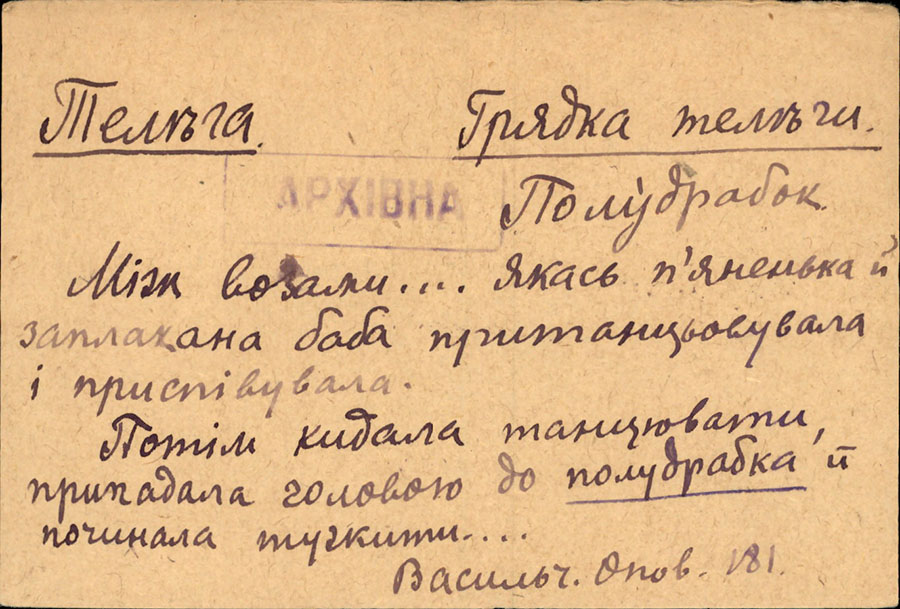 Телѣга. Грядка телѣги.
АРХІВНА
Полудрабок.
Між возами.... якась п'яненька й
заплакана баба пританцьовувала
і приспівувала.
Потім кидала танцювати,
припадала головою до полудрабка й
починала тужити....
Васильч. Опов. 181.